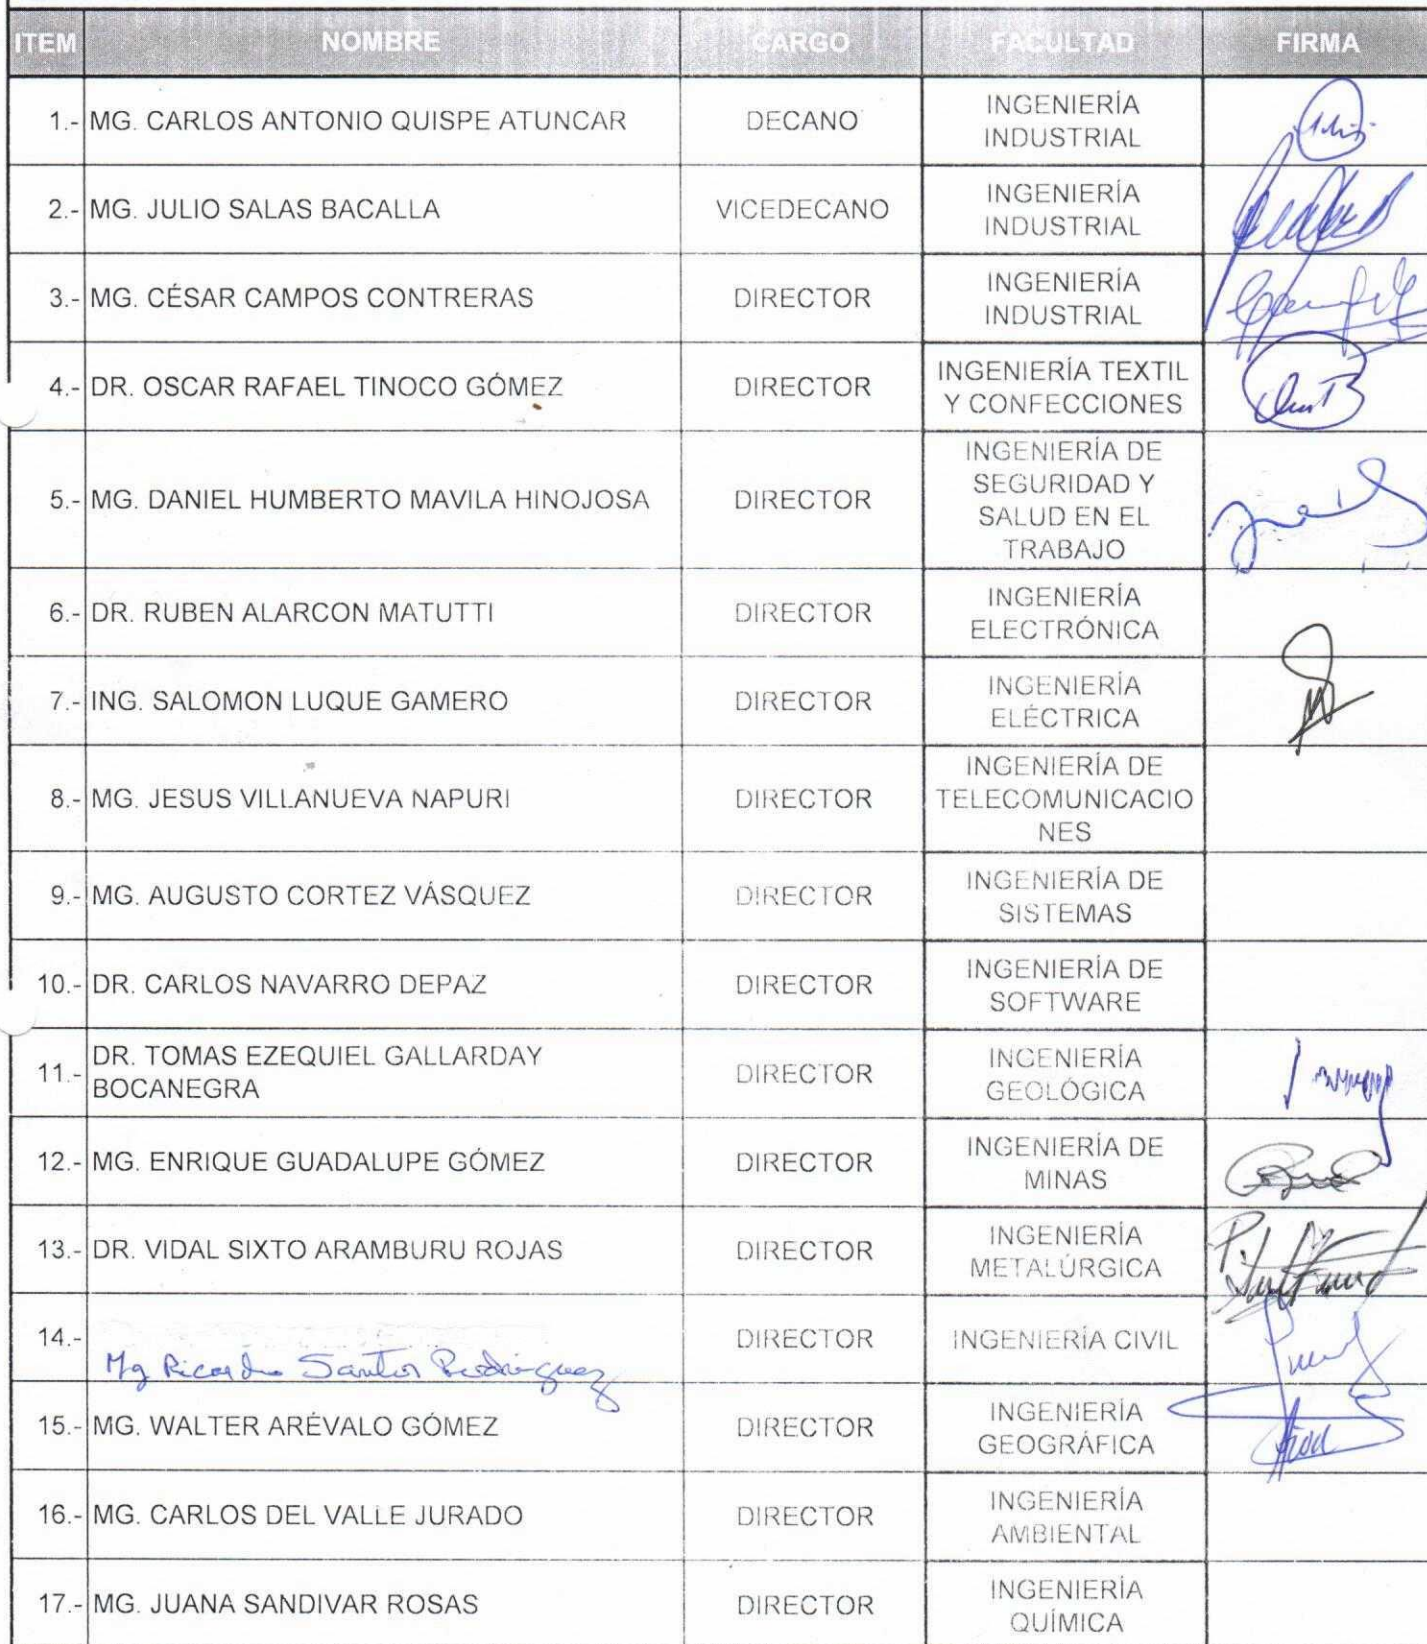 ITEM NOMBRE CARGO FACULTAD FIRMA
1.- MG. CARLOS ANTONIO QUISPE ATUNCAR DECANO INGENIERÍA
INDUSTRIAL
2.- MG. JULIO SALAS BACALLA VICEDECANO INGENIERÍA
INDUSTRIAL
3.- MG. CÉSAR CAMPOS CONTRERAS DIRECTOR INGENIERÍA
INDUSTRIAL
4.- DR. OSCAR RAFAEL TINOCO GÓMEZ DIRECTOR INGENIERÍA TEXTIL
Y CONFECCIONES
5.- MG. DANIEL HUMBERTO MAVILA HINOJOSA DIRECTOR INGENIERÍA DE
SEGURIDAD Y
SALUD EN EL
TRABAJO
6.- DR. RUBEN ALARCON MATUTTI DIRECTOR INGENIERÍA
ELECTRÓNICA
7.- ING. SALOMON LUQUE GAMERO DIRECTOR INGENIERÍA
ELÉCTRICA
8.- MG. JESUS VILLANUEVA NAPURI DIRECTOR INGENIERÍA DE
TELECOMUNICACIO
NES
9.- MG. AUGUSTO CORTEZ VÁSQUEZ DIRECTOR INGENIERÍA DE
SISTEMAS
10.- DR. CARLOS NAVARRO DEPAZ DIRECTOR INGENIERÍA DE
SOFTWARE
11.- DR. TOMAS EZEQUIEL GALLARDAY
BOCANEGRA DIRECTOR INGENIERÍA
GEOLÓGICA
12.- MG. ENRIQUE GUADALUPE GÓMEZ DIRECTOR INGENIERÍA DE
MINAS
13.- DR. VIDAL SIXTO ARAMBURU ROJAS DIRECTOR INGENIERÍA
METALÚRGICA
14.- Mg Ricardo Santos Rodriguez DIRECTOR INGENIERÍA CIVIL
15.- MG. WALTER ARÉVALO GÓMEZ DIRECTOR INGENIERÍA
GEOGRÁFICA
16.- MG. CARLOS DEL VALLE JURADO DIRECTOR INGENIERÍA
AMBIENTAL
17.- MG. JUANA SANDIVAR ROSAS DIRECTOR INGENIERÍA
QUÍMICA